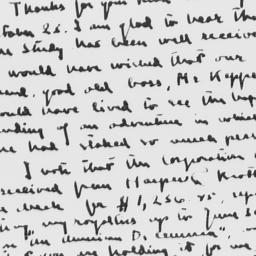 Thanks for your
26. I am glad to hear tha
study has been well receive
would have wished that our
good old boss, Mr Keppe
would have lived to see the
ending of an adventure in which
he had staked so much
I note that the Corporation
received from Harper's
check for $1,256.
my royalties up to June
"An American Dilemma",
holding it for me